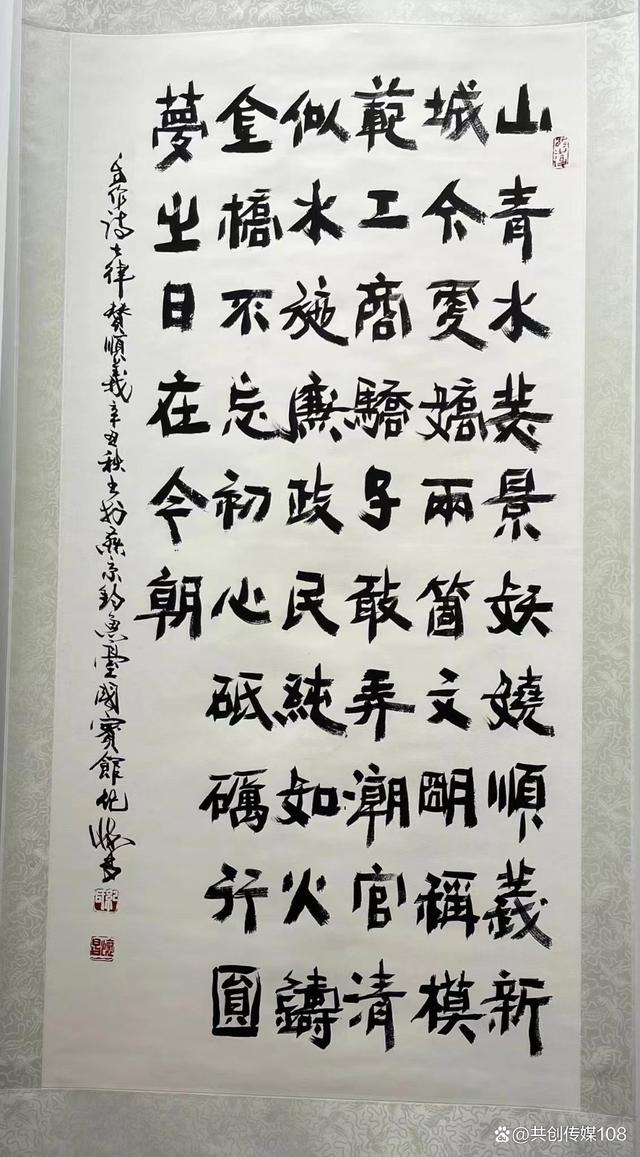 山青水美景妖嬈順義新
城今更嬌兩箇文明稱模
範工商驕子敢弄潮官清
似水施廉政民純如火鑄
金橋不忘初心砥礪行圓
夢之日在今朝
自作詩七律贊順義辛丑秋书於燕京釣魚臺國賓館
共创传媒108